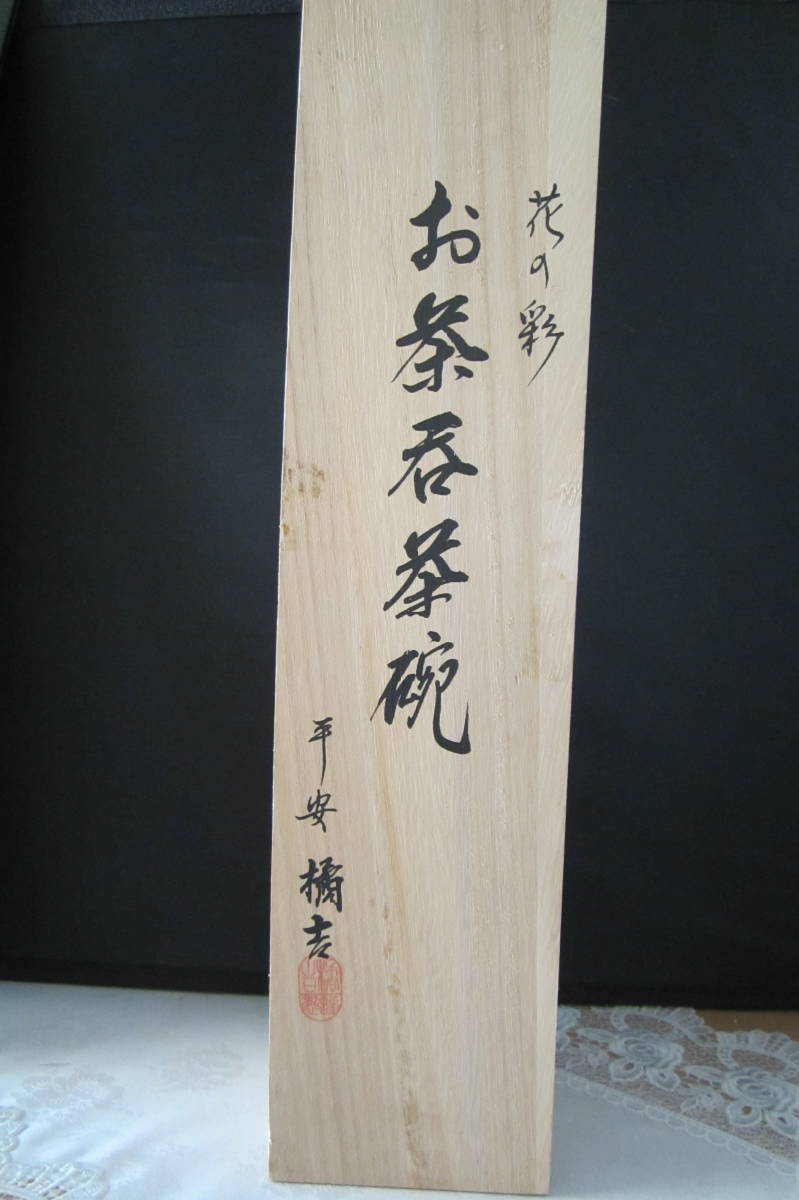 花の彩
お茶呑茶碗
平安 橘吉